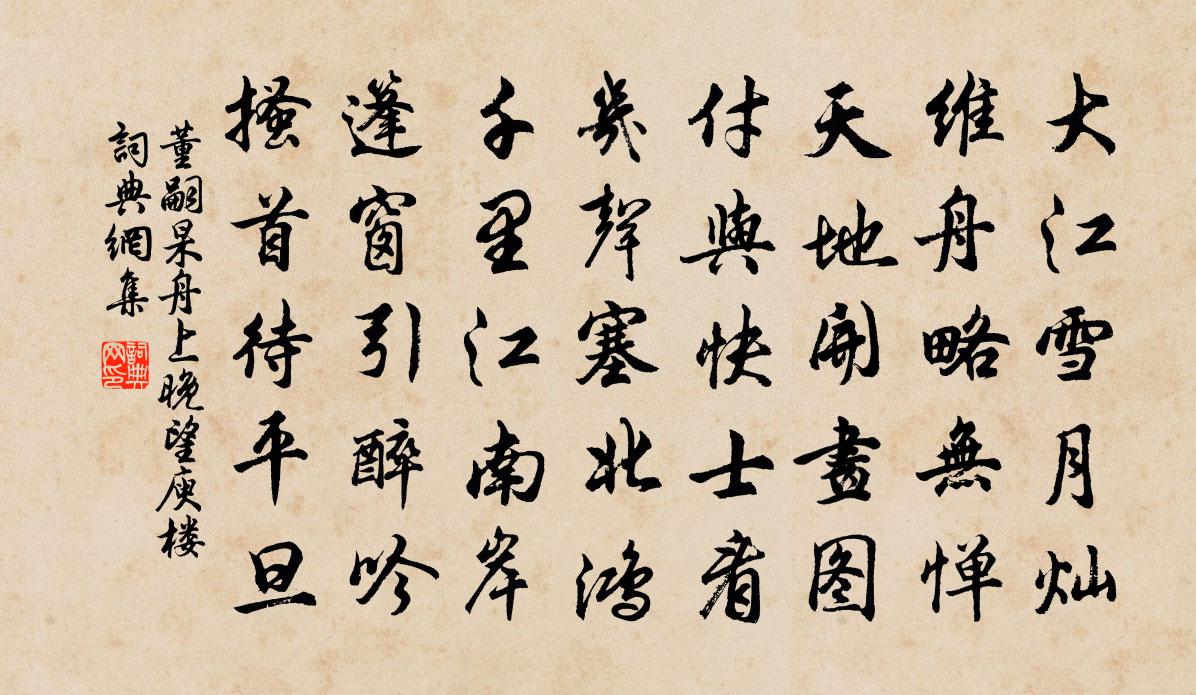 大江雪月灿
维舟略無惮
天地開畫图
付與快士看
幾聲塞北鴻
千里江南岸
蓬窗引醉吟
搔首待平旦
董嗣杲舟上晚望庾楼
詞典網集
詞典网印